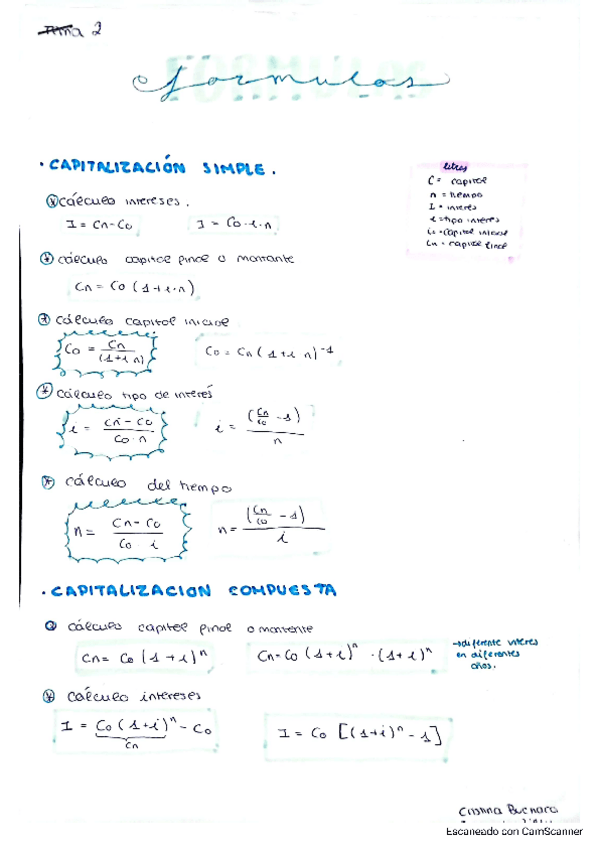 Tema 2
Formulas
· CAPITALIZACIÓN SIMPLE.
letras
C = capital
n = tiempo
I = interés
i = tipo interés
Co = capital inicial
Cn = capital final
* cálculo intereses.
I = Cn - Co    I = Co · i · n
* cálculo capital final o montante
Cn = Co (1 + i · n)
* cálculo capital inicial
Co = Cn / (1 + i n)    Co = Cn (1 + i n)^-1
* cálculo tipo de interés
i = (Cn - Co) / (Co · n)    i = (Cn/Co - 1) / n
* cálculo del tiempo
n = (Cn - Co) / (Co i)    n = (Cn/Co - 1) / i
· CAPITALIZACION COMPUESTA
* cálculo capital final o montante
Cn = Co (1 + i)^n    Cn = Co (1 + i)^n · (1 + i)^n
→ diferente interes
en diferentes
años.
* cálculo intereses
I = Co (1 + i)^n - Co    I = Co [(1 + i)^n - 1]
Cn
Cristina
Escaneado con CamScanner